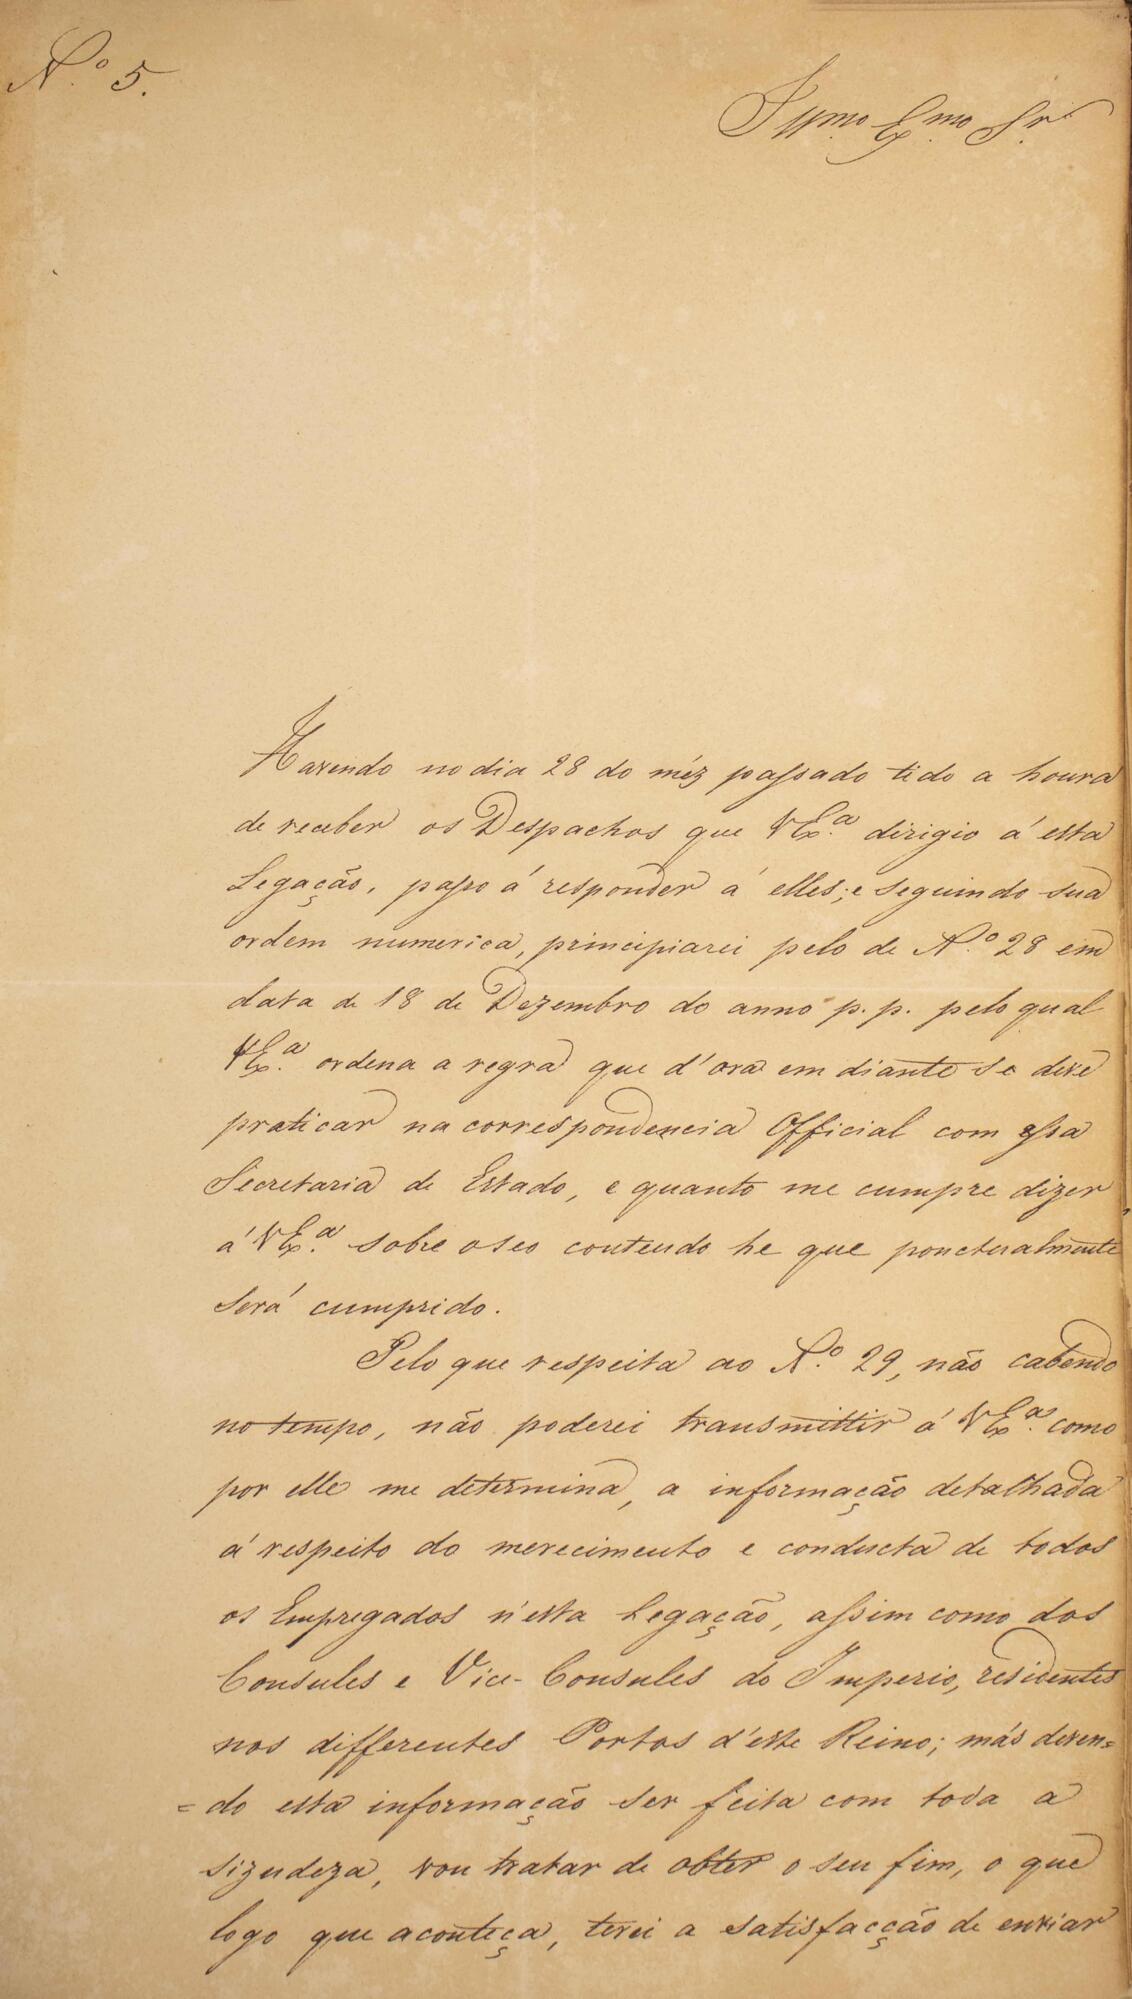 N.º 5.
Illmo. Exmo. Sr.
Havendo no dia 28 do méz passado tido a honra
de receber os Despachos que V Ex.ª dirigio á esta
Legação, passo á responder á elles; e seguindo sua
ordem numerica, principiarei pelo de N.º 28 em
data de 18 de Dezembro do anno p. p. pelo qual
V Ex.ª ordena a regra que d'ora em diante se deve
praticar na correspondencia Official com essa
Secretaria de Estado, e quanto me cumpre dizer
á V Ex.ª sobre o seo contendo he que ponctualmente
será cumprido.
Pelo que respeita ao N.º 29, não cabendo
no tempo, não poderei transmittir á V Ex.ª como
por elle me determina, a informação detalhada
á respeito do merecimento e conducta de todos
os Empregados n'esta Legação, assim como dos
Consules e Vice-Consules do Imperio, residentes
nos differentes Portos d'este Reino; más deven=
=do esta informação ser feita com toda a
sizudeza, vou tratar de obter o seu fim, o que
logo que aconteça, terei a satisfacção de enviar